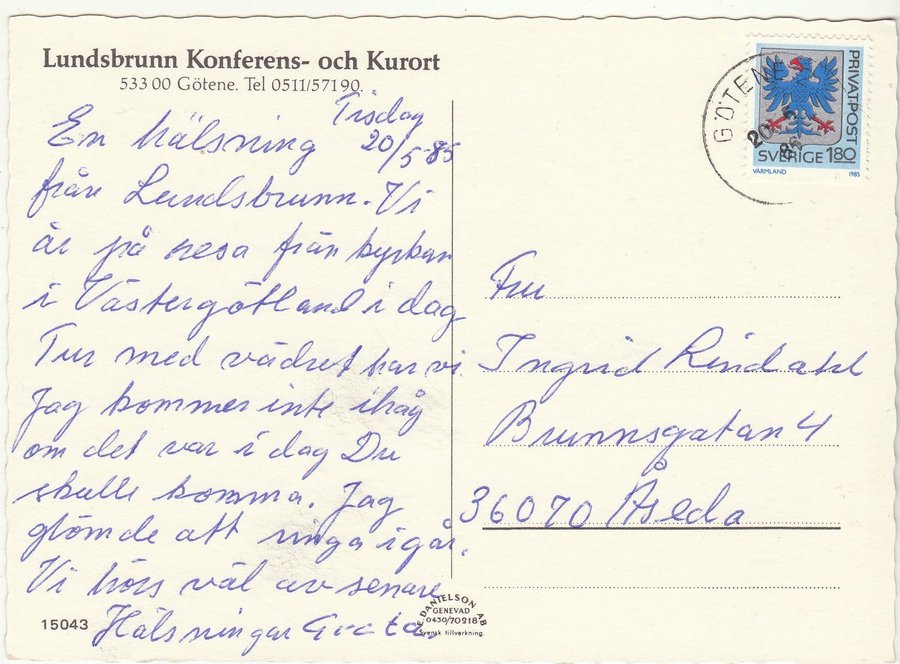 Lundsbrunn Konferens- och Kurort
533 00 Götene. Tel 0511/57190.
Tisdag
20/5-85
En hälsning
från Lundsbrunn. Vi
är på resa från kyrkan
i Västergötland i dag
Tur med vädret har vi.
Jag kommer inte ihåg
om det var i dag Du
skulle komma. Jag
glömde att ringa igår.
Vi hörs väl av senare
Hälsningar Greta.
15043
DANIELSON AB
GENEVAD
0430/70218
Svensk tillverkning.
GÖTENE
20 5
86
PRIVATPOST
SVERIGE 180
VÄRMLAND 1985
Fru
Ingrid Lindahl
Brunnsgatan 4
36070 Åseda